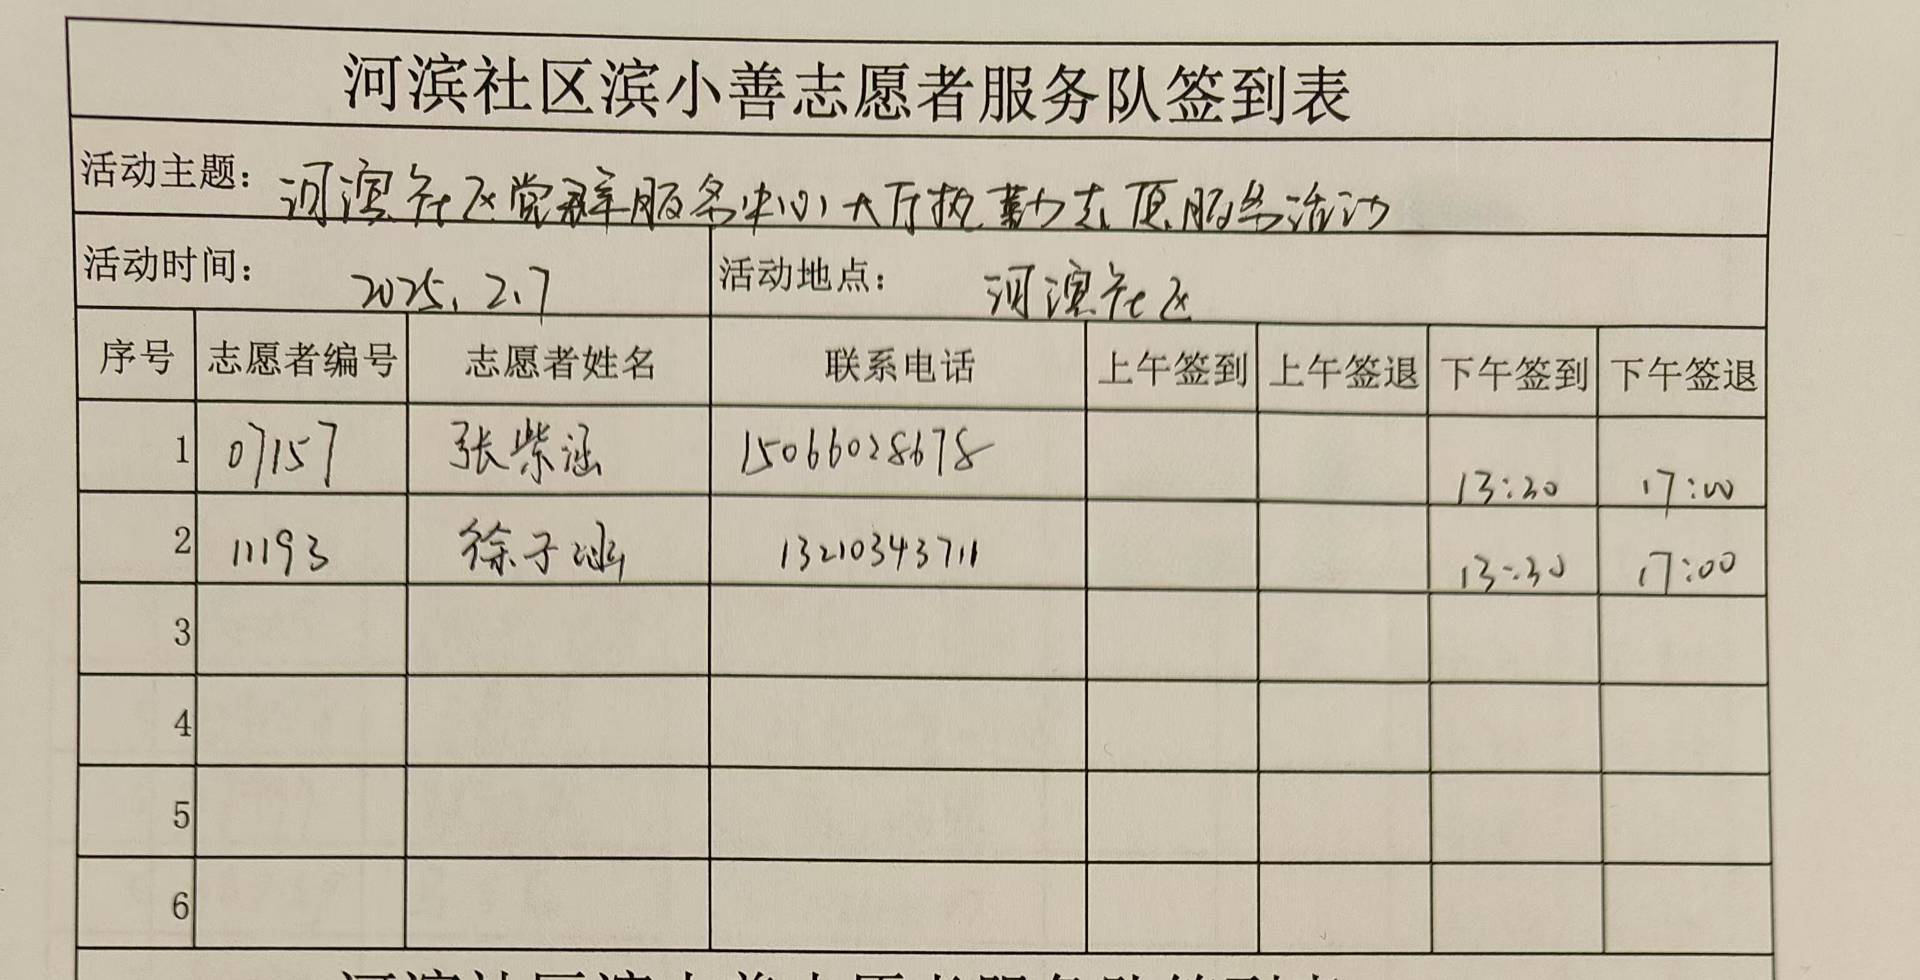 河滨社区滨小善志愿者服务队签到表
活动主题：河滨社区党群服务中心大厅执勤志愿服务活动
活动时间：2025.2.7 活动地点：河滨社区
序号 志愿者编号 志愿者姓名 联系电话 上午签到 上午签退 下午签到 下午签退
1 07157 张紫涵 15066028678 13:30 17:00
2 11193 徐子涵 13210343711 13:30 17:00
3
4
5
6